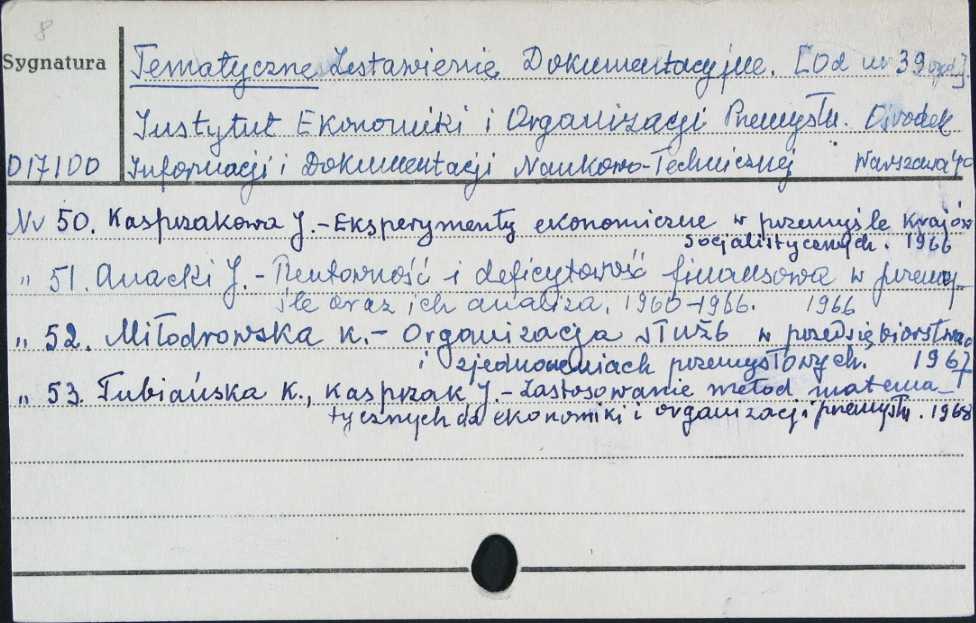 8
Sygnatura
Tematyczne Zestawienie Dokumentacyjne. [Od nr 39
Instytut Ekonomiki i Organizacji Przemysłu. Ośrodek
017100 Informacji i Dokumentacji Naukowo-Technicznej Warszawa
Nr 50. Kasprzakowa J. - Eksperymenty ekonomiczne w przemyśle krajów
socjalistycznych. 1966
" 51. Anacki J. - Rentowność i deficytowość finansowa w przemy-
śle oraz ich analiza. 1960-1966. 1966
" 52. Miłodrowska K. - Organizacja służb w przedsiębiorstwac
i zjednoczeniach przemysłowych. 1967
" 53. Łubiańska K., Kasprzak J. - Zastosowanie metod matema-
tycznych do ekonomiki i organizacji przemysłu. 1968